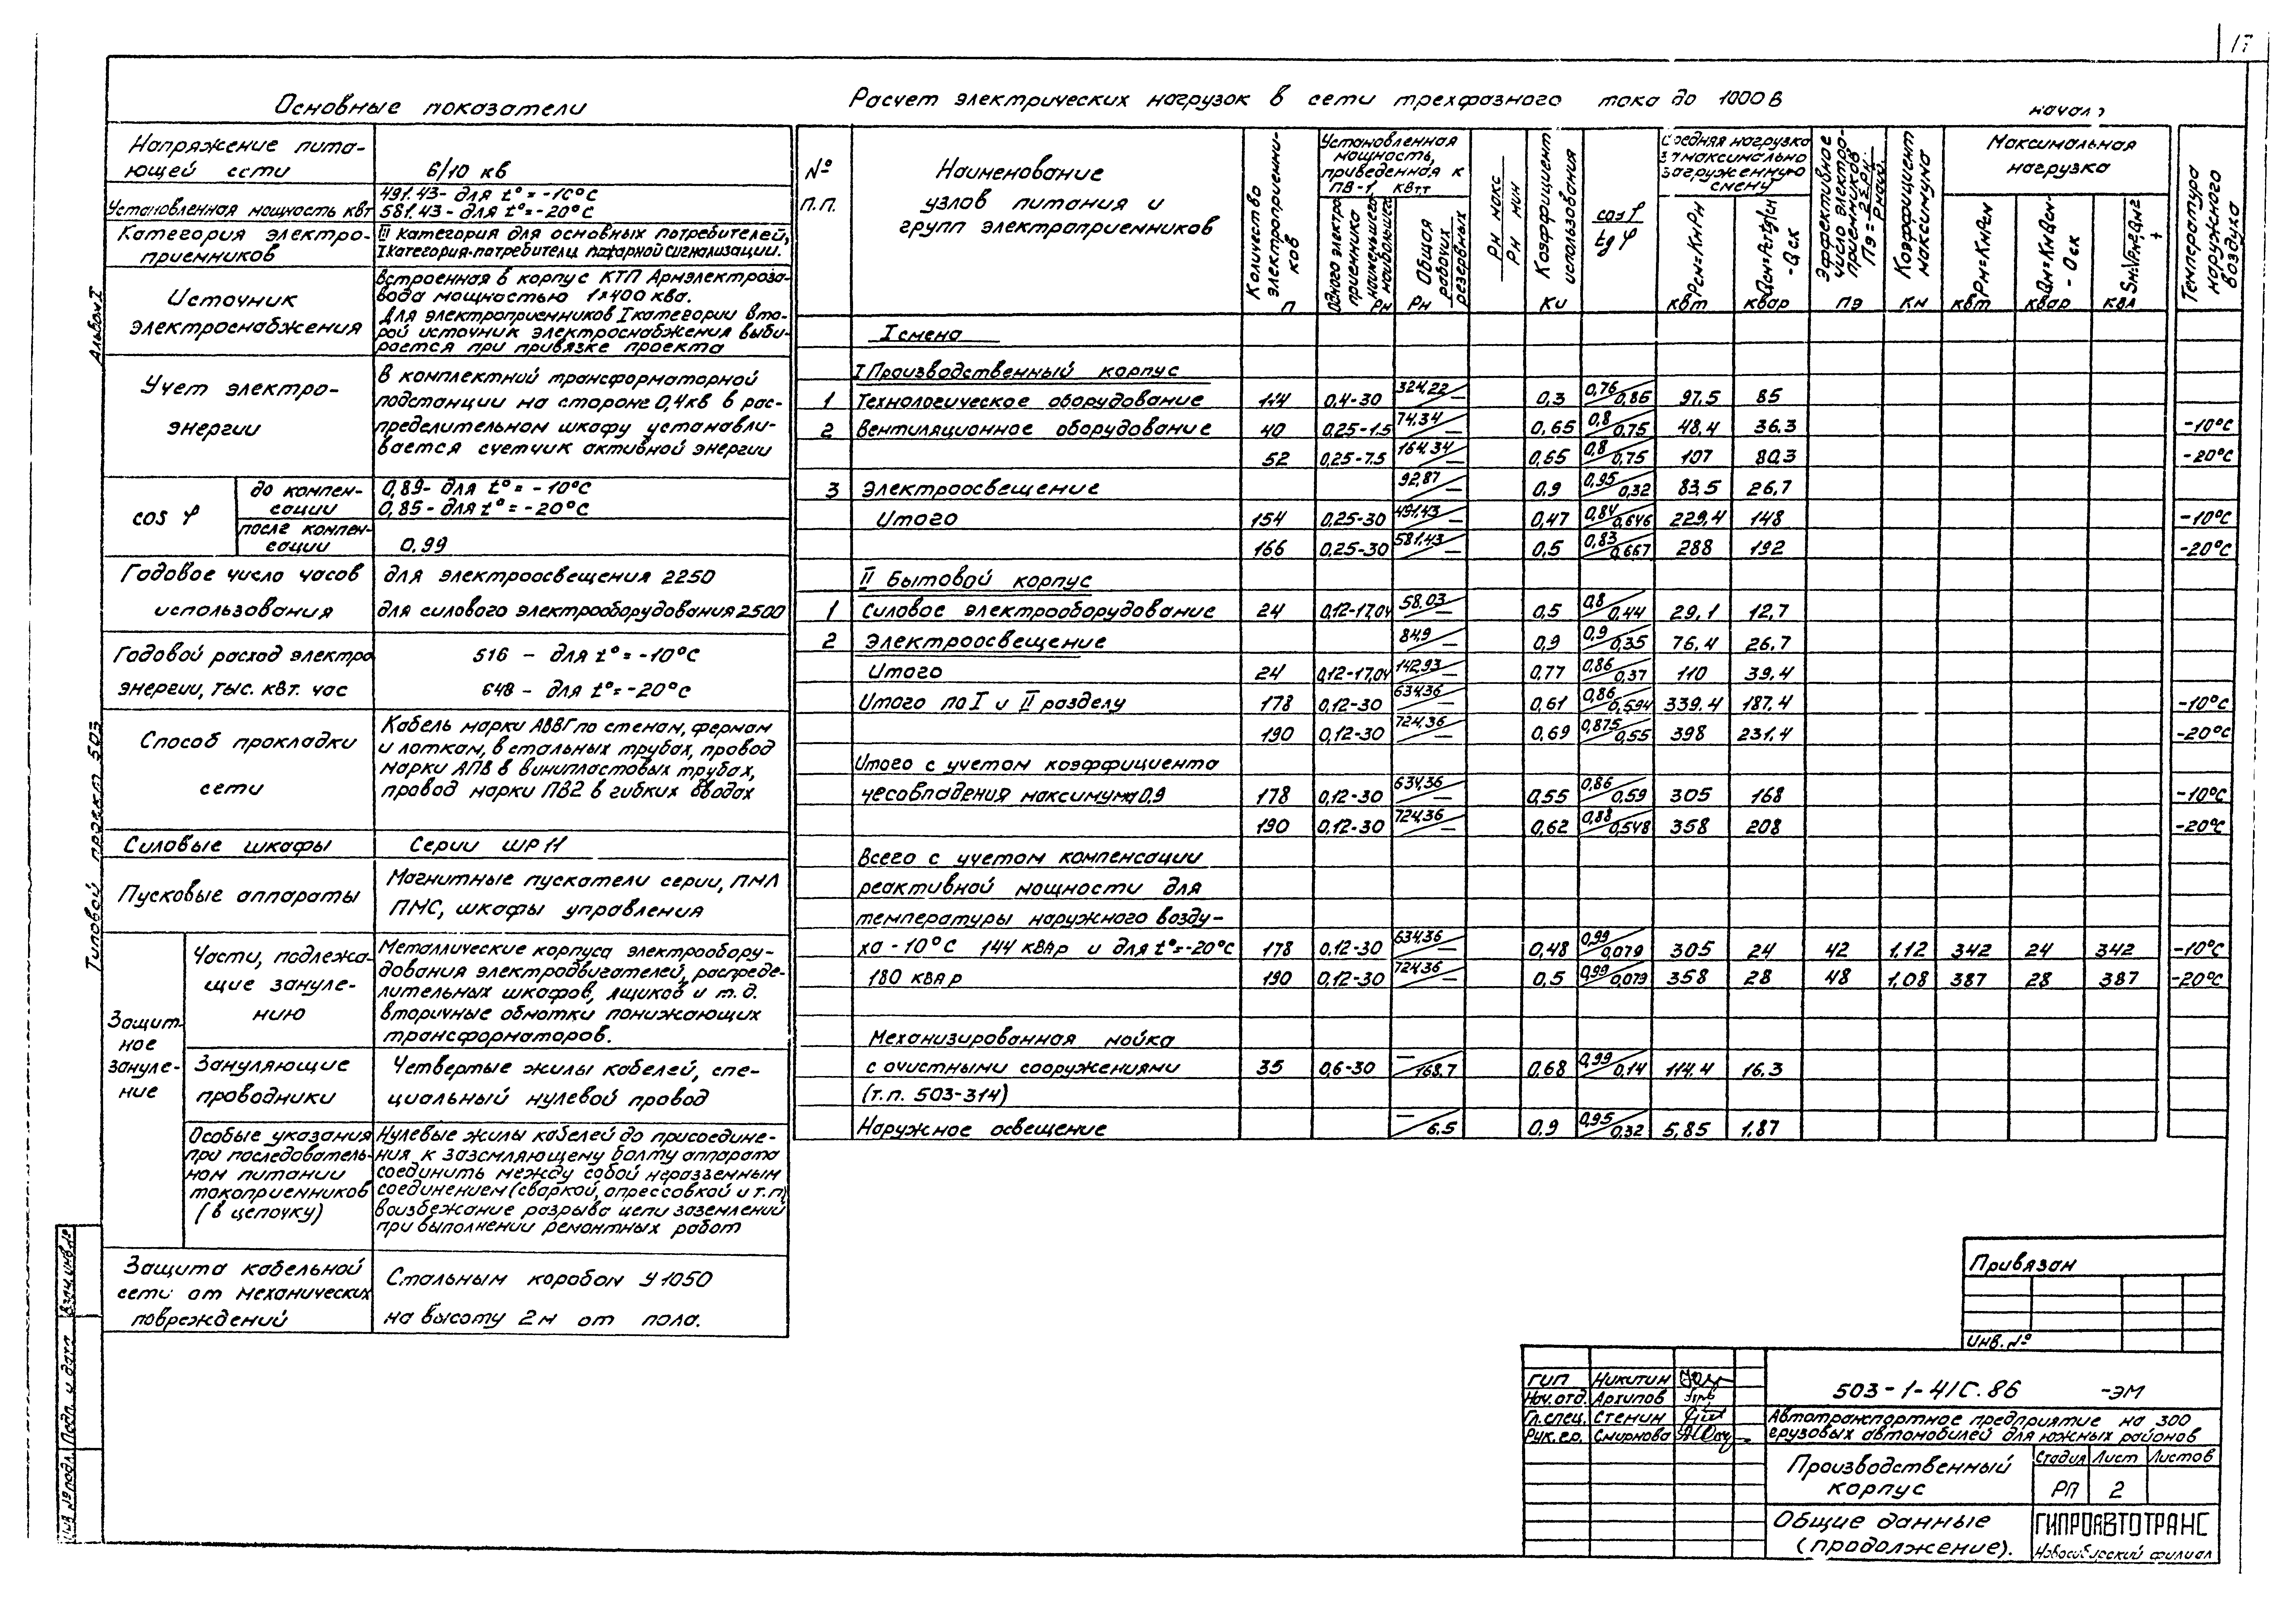 17
Основные показатели
Напряжение питающей сети
6/10 кв
Установленная мощность квт
491.43- для t°= -10°С
581.43- для t°= -20°С
Категория электроприемников
III категория для основных потребителей,
I категория-потребители пожарной сигнализации.
Источник
электроснабжения
Встроенная в корпус КТП Армэлектроза-
вода мощностью 1х400 ква.
Для электроприемников I категории вто-
рой источник электроснабжения выби-
рается при привязке проекта
Учет электро-
энергии
В комплектной трансформаторной
подстанции на стороне 0,4кв в рас-
пределительном шкафу устанавли-
вается счетчик активной энергии
cos φ
до компен-
сации
0,89- для t°= -10°С
0,85- для t°= -20°С
после компен-
сации
0.99
Годовое число часов
использования
для электроосвещения 2250
для силового электрооборудования 2500
Годовой расход электро
энергии, тыс. квт. час
516 - для t°= -10°С
648 - для t°= -20°С
Способ прокладки
сети
Кабель марки АВВГ по стенам, фермам
и лоткам, в стальных трубах, провод
марки АПВ в винипластовых трубах,
провод марки ПВ2 в гибких вводах
Силовые шкафы
Серии ШР11
Пусковые аппараты
Магнитные пускатели серии, ПМЛ
ПМС, шкафы управления
Защит-
ное
зануле-
ние
Части, подлежа-
щие зануле-
нию
Металлические корпуса электрообору-
дования электродвигателей, распреде-
лительных шкафов, ящиков и т.д.
вторичные обмотки понижающих
трансформаторов.
Зануляющие
проводники
Четвертые жилы кабелей, спе-
циальный нулевой провод
Особые указания
при последователь-
ном питании
токоприемников
(в цепочку)
Нулевые жилы кабелей до присоедине-
ния к заземляющему болту аппарата
соединить между собой неразъемным
соединением (сваркой, опрессовкой и т.п)
воизбежание разрыва цепи заземлений
при выполнении ремонтных работ
Защита кабельной
сети от механических
повреждений
Стальным коробом У1050
на высоту 2м от пола.
Расчет электрических нагрузок в сети трехфазного тока до 1000 В
начало
№ п.п.
Наименование
узлов питания и
групп электроприемников
Количество электроприемников n
Установленная мощность, приведенная к ПВ-1, квтт
Одного электроприемника наименьшего наибольшего Рн
Общая рабочих резервных Рн
Рн макс Рн мин
Коэффициент использования Ки
cos φ tg φ
Средняя нагрузка з максимально загруженную смену
Рсм=КиРн квт
Qсм=Рсtgφсм -Qск квар
Эффективное число электроприемников Пэ=2ΣРн Рнаиб. Пэ
Коэффициент максимума Км
Максимальная нагрузка
Рм=КмРсм квт
Qм=КмQсм- - Qск квар
Sм=√Рм²+Qм² ква
Температура наружного воздуха t
I смена
I Производственный корпус
1 Технологическое оборудование 114 0,4-30 324,22 — 0,3 0,76 0,86 97.5 85
2 Вентиляционное оборудование 40 0,25-1.5 74,34 — 0,65 0,8 0,75 48.4 36.3 -10°С
52 0,25-7.5 164.34 — 0,65 0,8 0,75 107 80,3 -20°С
3 Электроосвещение 92,87 — 0.9 0,95 0,32 83,5 26,7
Итого 154 0,25-30 491.43 — 0,47 0,84 0,646 229,4 148 -10°С
166 0,25-30 581.43 — 0,5 0,83 0,667 288 192 -20°С
II Бытовой корпус
1 Силовое электрооборудование 24 0,12-17,04 58.03 — 0,5 0,8 0,44 29,1 12,7
2 Электроосвещение 84,9 — 0,9 0,9 0,35 76.4 26.7
Итого 24 0,12-17,04 142,93 — 0,77 0,86 0,37 110 39.4
Итого по I и II разделу 178 0,12-30 634,36 — 0,61 0,86 0,594 339.4 187.4 -10°С
190 0,12-30 724,36 — 0,69 0,875 0,55 398 231.4 -20°С
Итого с учетом коэффициента
несовпадения максимума 0,9 178 0,12-30 634,36 — 0,55 0,86 0,59 305 168 -10°С
190 0,12-30 724,36 — 0,62 0,88 0,548 358 208 -20°С
Всего с учетом компенсации
реактивной мощности для
температуры наружного возду-
ха -10°С 144 КВАр и для t°=-20°С 178 0.12-30 634,36 — 0,48 0,99 0,079 305 24 42 1.12 342 24 342 -10°С
180 КВАр 190 0,12-30 724,36 — 0,5 0,99 0,079 358 28 48 1,08 387 28 387 -20°С
Механизированная мойка
с очистными сооружениями 35 0,6-30 — 168.7 0,68 0,99 0,14 114.4 16.3
(т.п. 503-314)
Наружное освещение — 6.5 0,9 0,95 0,32 5,85 1,87
Альбом I
Типовой проект 503
Взам. инв.№
Подп. и дата
Инв № подл.
Привязан
Инв. №
ГИП Никитин
Нач.отд. Архипов
Гл.спец. Стенин
Рук.гр. Смирнова
503-1-41С.86 -ЭМ
Автотранспортное предприятие на 300
грузовых автомобилей для южных районов
Производственный
корпус
Стадия Лист Листов
РП 2
Общие данные
(продолжение).
ГИПРОАВТОТРАНС
Новосибирский филиал